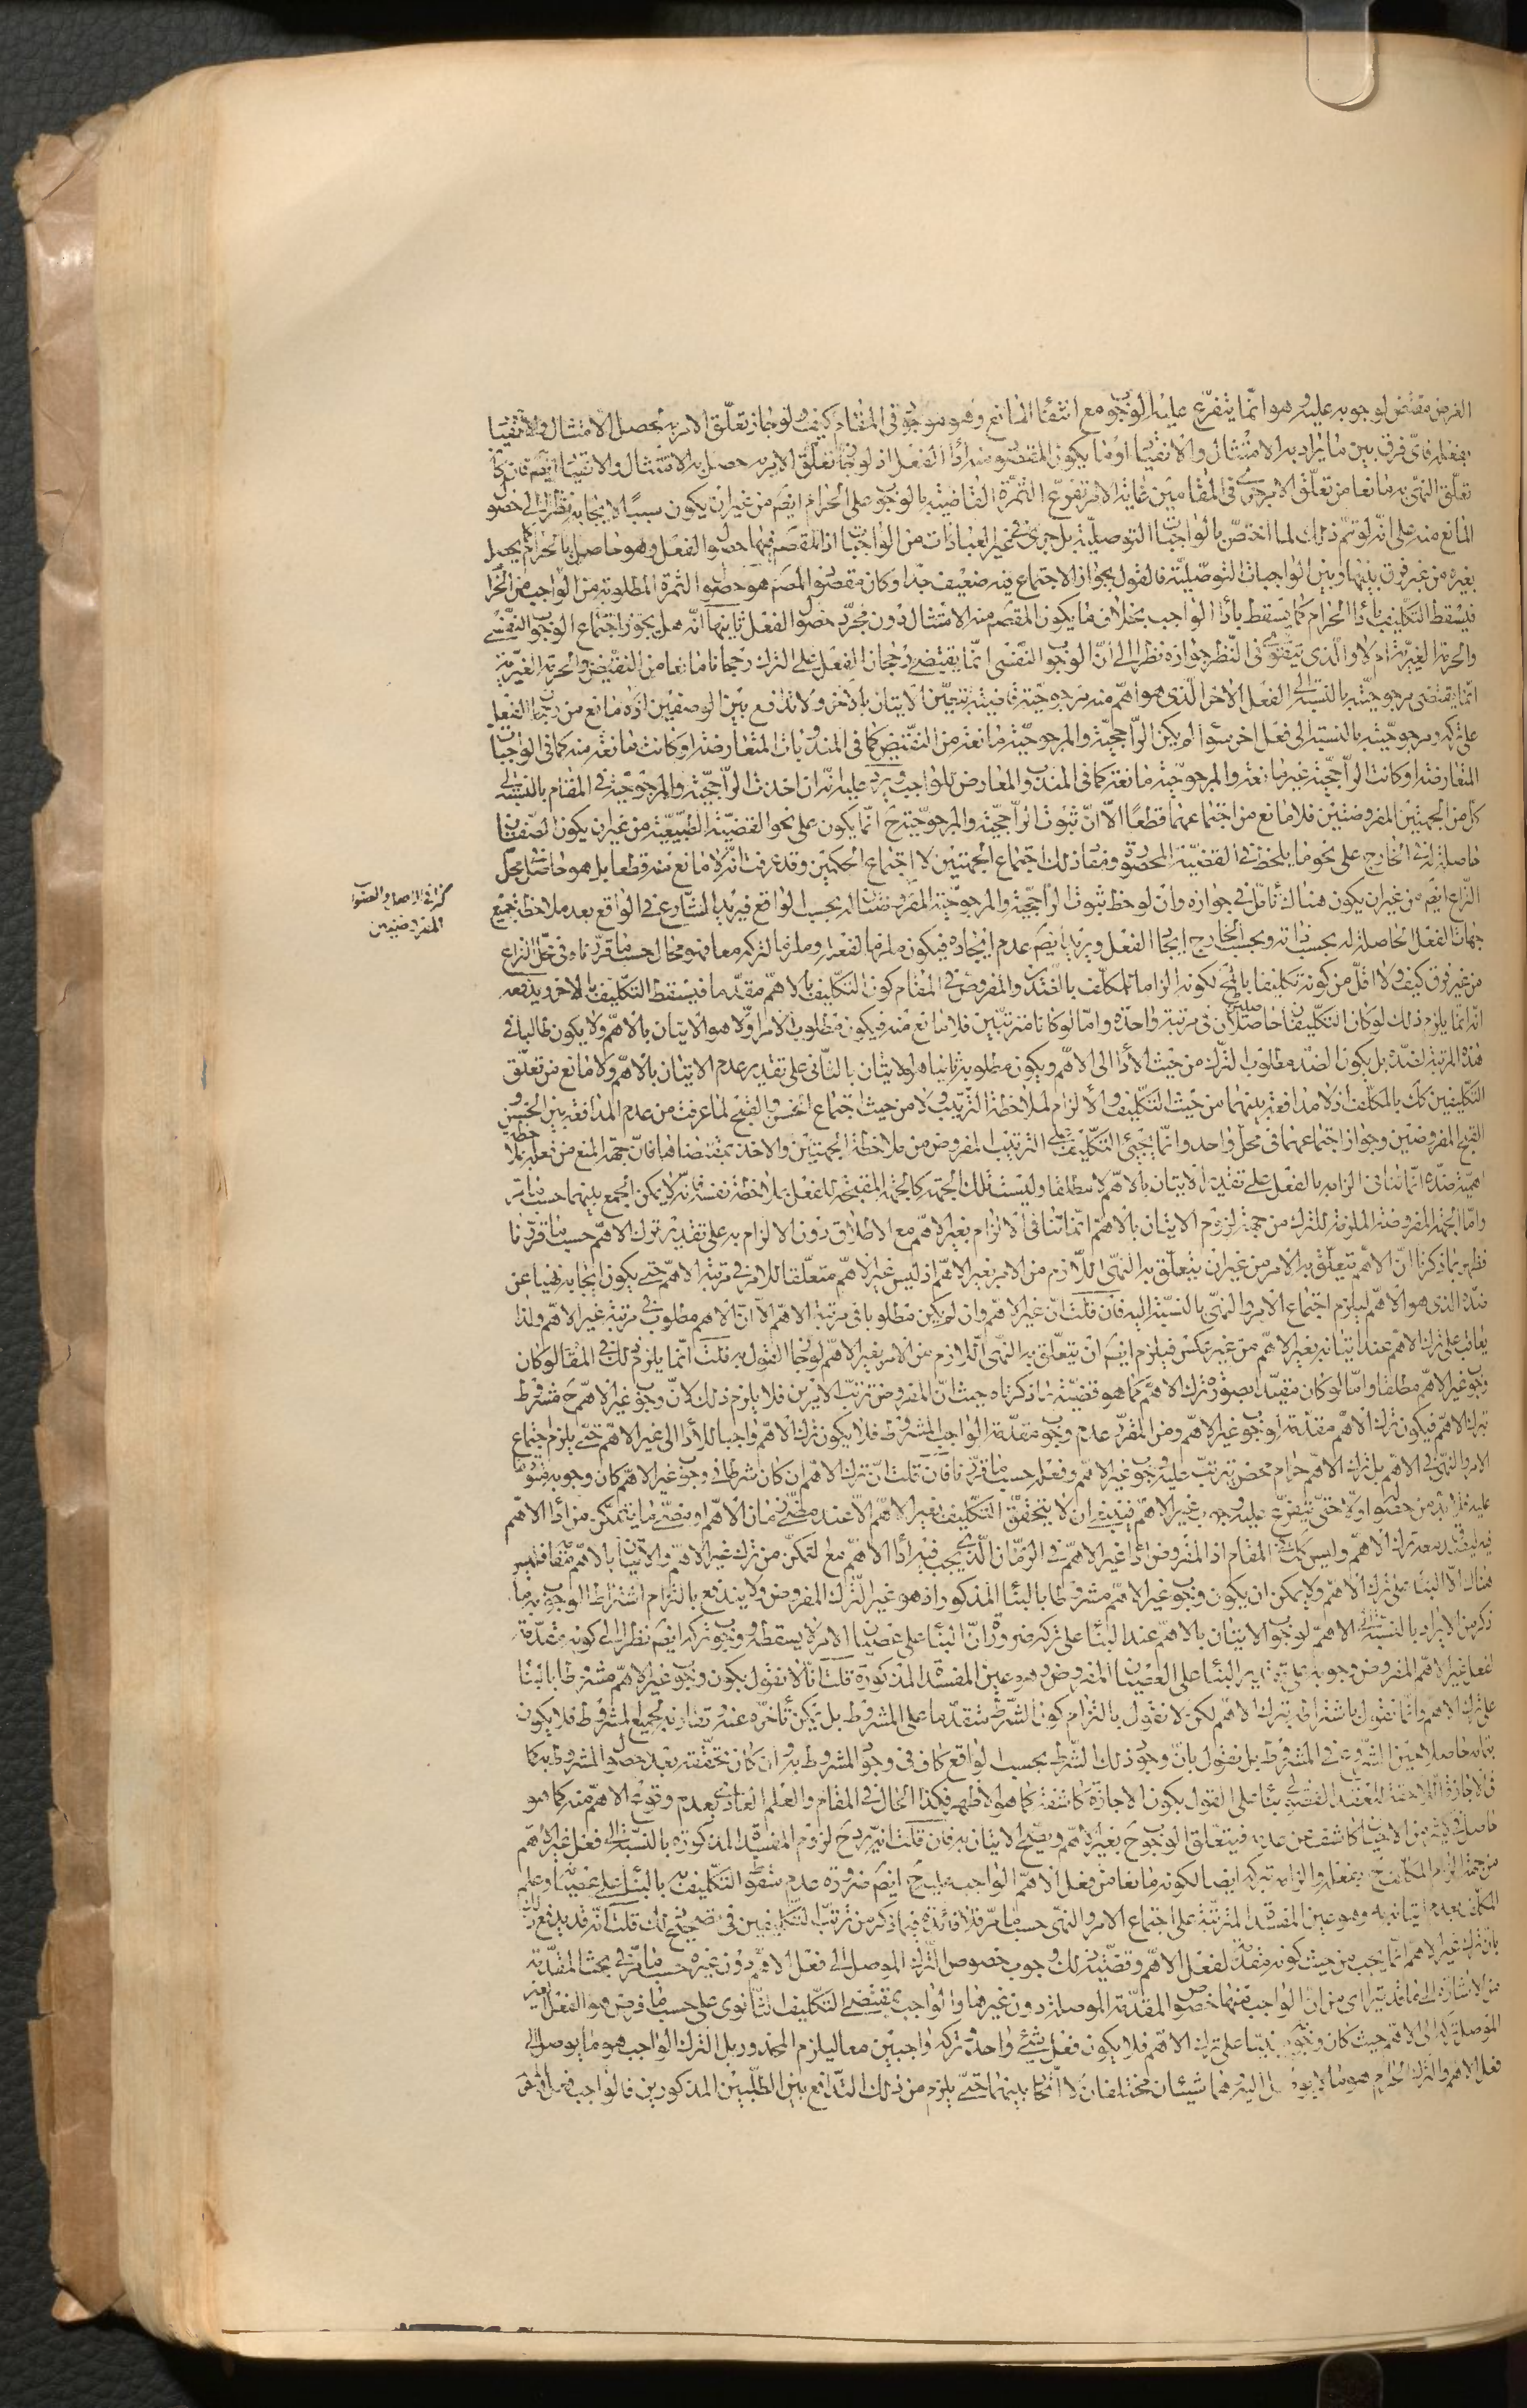 الغرض مقتض لوجوبه عليه هو انما يتفرع عليه الوجوب مع انتفاء المانع وهو موجود في المقام كيف ولو جاز تعلق الامر به لحصل الامتثال والانقياد
بفعله فاى فرق بين ما يراد به الامتثال والانقياد او ما يكون المقصود منه أداء الفعل اذ لو جاز تعلق الامر به حصل به الامتثال والانقياد ايضم فان كان
تعلق النهى به مانعا من تعلق الامر جرى في المقامين غاية الامر تفرع الثمرة القاضية بالوجوب على الحرام ايضم من غير ان يكون سببا لايجابه نظرا الى حصول
المانع منه على انه لو تم ذلك لما اختص بالواجبات التوصلية بل جرى في غير العبادات من الواجبات اذ المقصم فيها حصول الفعل وهو حاصل بالحرام كما يحصل
بغيره من غير فرق بينها وبين الواجبات التوصلية فالقول بجواز الاجتماع فيه ضعيف جدا وكان مقصود المصم هو حصول الثمرة المطلوبة من الواجب من الحرام
فيسقط التكليف بأداء الحرام كما يسقط بأداء الواجب بخلاف ما يكون المقصم منه الامتثال دون مجرد حصول الفعل ثانيها انه هل يجوز اجتماع الوجوب النفسي
والحرمة الغيرية ام لا والذى يتقوى في النظر جوازه نظرا الى ان الوجوب النفسى انما يقتضى رجحان الفعل على الترك رجحانا مانعا من النقيض والحرمة الغيرية
انما يقتضى مرجوحيته بالنسبة الى الفعل الاخر الذى هو اهم منه مرجوحية قاضية بتعين الاتيان بالاخر ولا تدافع بين الوصفين اذ لا مانع من رجحان الفعل
على تركه ومرجوحيته بالنسبة الى فعل اخر سواء لم يكن الراجحية والمرجوحية مانعة من النقيض كما في المندوبات المتعارضة او كانت مانعة منه كما في الواجبات
المتعارضة او كانت الراجحية غير مانعة والمرجوحية مانعة كما في المندوب المعارض للواجب ويرد عليه انه ان اخذت الراجحية والمرجوحية في المقام بالنسبة الى
كل من الجهتين المفروضتين فلا مانع من اجتماعهما قطعا الا ان ثبوت الراجحية والمرجوحية ح انما يكون على نحو القضية الطبيعية من غير ان يكون الصفتان
حاصلة له في الخارج على نحو ما يلحظ في القضية المحصورة ومفاد ذلك اجتماع الجهتين لا اجتماع الحكمين وقد عرفت انه لا مانع منه قطعا بل هو حاصل في محل
النزاع ايضم من غير ان يكون هناك تأمل في جوازه وان لوحظ ثبوت الراجحية والمرجوحية المفروضتان له بحسب الواقع فيريد الشارع في الواقع بعد ملاحظة جميع
جهات الفعل الحاصلة له بحسب ذاته وبحسب الخارج ايجاد الفعل ويريد ايضم عدم ايجاده فيكون ملزما لفعله وملزما لتركه معا فهو محال حسبما قررناه في محل النزاع
من غير فرق كيف ولا اقل من كونه تكليفا بالمحال لكونه الزاما للمكلف بالضدين والمفروض في المقام كون التكليف بالاهم مقدما فيسقط التكليف بالاخر ويدفعه
انه انما يلزم ذلك لو كان التكليفان حاصلين في مرتبة واحدة واما لو كانا مترتبين فلا مانع منه فيكون مطلوب الامر اولا هو الاتيان بالاهم ولا يكون طالبا في
هذه المرتبة لضده بل يكون الضد مطلوب الترك من حيث الأداء الى الاهم ويكون مطلوبه ثانيا هو الاتيان بالثانى على تقدير عدم الاتيان بالاهم ولا مانع من تعلق
التكليفين كك بالمكلف اذ لا مدافعة بينهما من حيث التكليف والالزام لملاحظة الترتيب ولا من حيث اجتماع الحسن والقبح لما عرفت من عدم المدافعة بين الحسن و
القبح المفروضين وجواز اجتماعهما في محل واحد وانما يجئ التكليف على الترتيب المفروض من ملاحظة الجهتين والاخذ بمقتضاهما فان جهة المنع من فعله بملاحظة
اهمية ضده انما تنافى الزامه بالفعل على تقدير الاتيان بالاهم لا مطلقا وليست تلك الجهة كالجهة المقبحة للفعل بملاحظة نفسه فانه لا يمكن الجمع بينهما حسبما مر
واما الجهة المفروضة الملزمة للترك من جهة لزوم الاتيان بالاهم انما تنافى الالزام بغير الاهم مع الاطلاق دون الالزام به على تقدير ترك الاهم حسبما قررنا
فظهر بما ذكرنا ان الاهم يتعلق به الامر من غير ان يتعلق به النهى اللازم من الامر بغير الاهم اذ ليس غير الاهم متعلقا للامر في مرتبة الاهم حتى يكون ايجابه نهيا عن
ضده الذى هو الاهم ليلزم اجتماع الامر والنهى بالنسبة اليه فان قلت ان غير الاهم وان لم يكن مطلوبا في مرتبة الاهم الا ان الاهم مطلوب في مرتبة غير الاهم ولذا
يعاقب على ترك الاهم عند اتيانه بغير الاهم من غير عكس فيلزم ايضم ان يتعلق به النهى اللازم من الامر بغير الاهم لو جاز القول به قلت انما يلزم ذلك في المقام لو كان
وجوب غير الاهم مطلقا واما لو كان مقيدا بصورة ترك الاهم كما هو قضية ما ذكرناه حيث ان المفروض ترتب الامرين فلا يلزم ذلك لان وجوب غير الاهم ح مشروط
بترك الاهم فيكون ترك الاهم مقدمة لوجوب غير الاهم ومن المقرر عدم وجوب مقدمة الواجب المشروط فلا يكون ترك الاهم واجبا للأداء الى غير الاهم حتى يلزم اجتماع
الامر والنهى في الاهم بل ترك الاهم حرام محض يترتب عليه وجوب غير الاهم وفعله حسبما قررنا فان قلت ان ترك الاهم ان كان شرطا في وجوب غير الاهم كان وجوبه متوقفا
عليه فلا بد من حصوله اولا حتى يتفرع عليه وجوب غير الاهم فينبغى ان لا يتحقق التكليف بغير الاهم الا عند مضى زمان الاهم او مضى ما يتمكن من أداء الاهم
فيه ليصدق معه ترك الاهم وليس كك في المقام اذ المفروض أداء غير الاهم في الزمان الذى يجب فيه أداء الاهم مع التمكن من ترك غير الاهم والاتيان بالاهم فليس
هناك الا البناء على ترك الاهم ولا يمكن ان يكون وجوب غير الاهم مشروطا بالبناء المذكور اذ هو غير الترك المفروض ولا يندفع بالتزام اشتراط الوجوب به ما
ذكر من الايراد بالنسبة الى الاهم لوجوب الاتيان بالاهم عند البناء على تركه ضرورة ان البناء على عصيان الامر لا يسقطه ووجوب تركه ايضم نظرا الى كونه مقدمة
لفعل غير الاهم المفروض وجوبه على تقدير البناء على العصيان المفروض وهو عين المفسدة المذكورة قلت انا لا نقول بكون وجوب غير الاهم مشروطا بالبناء
على ترك الاهم وانما نقول باشتراطه بترك الاهم لكن لا نقول بالتزام كون الشرط متقدما على المشروط بل يمكن تأخره عنه وتقارنه لجميع المشروط فلا يكون
بتمامه حاصلا حين الشروع في المشروط بل نقول بان وجود ذلك الشرط بحسب الواقع كاف في وجود المشروط به وان كان تحققه بعد حصول المشروط به كما
في الاجازة اللاحقة للعقد الفضولى بناء على القول بكون الاجازة كاشفة كما هو الاظهر فكذا الحال في المقام والعلم العادى بعدم وقوع الاهم منه كما هو
حاصل في كثير من الاحيان كاشف عن عدمه فيتعلق الوجوب ح بغير الاهم ويصح الاتيان به فان قلت انه يرد ح لزوم المفسدة المذكورة بالنسبة الى فعل غير الاهم
من جهة الزام المكلف ح بفعله والزامه بتركه ايضا لكونه مانعا من فعل الاهم الواجب عليه ح ايضم ضرورة عدم سقوط التكليف به بالبناء على عصيانه وعلم
المكلف بعدم اتيانه به وهو عين المفسدة المترتبة على اجتماع الامر والنهى حسبما مر فلا فائدة فيما ذكر من ترتب التكليفين في تصحيح ذلك قلت انه قد يدفع ذلك
بان ترك غير الاهم انما يجب من حيث كونه مقدمة لفعل الاهم وقضية ذلك وجوب خصوص الترك الموصل الى فعل الاهم دون غيره حسبما مر في بحث المقدمة
من الاشارة الى ما قد يترائى من ان الواجب منها خصوص المقدمة الموصلة دون غيرها والواجب بمقتضى التكليف الثانوى على حسب ما فرض هو الفعل الغير
الموصل تركه الى الاهم حيث كان وجوبه مبنيا على ترك الاهم فلا يكون فعل شئ واحد وتركه واجبين معا ليلزم المحذور بل الترك الواجب هو ما يوصل الى
فعل الاهم والترك الحرام هو ما لا يوصل اليه وهما شيئان مختلفان لا اتحاد بينهما حتى يلزم من ذلك التدافع بين الطلبين المذكورين فالواجب فعل الاهم
المفروضتين